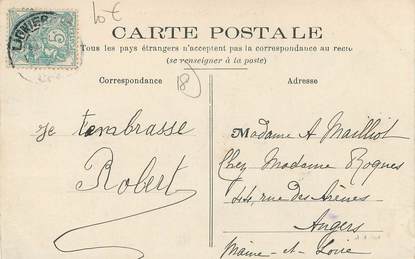 10 €
CARTE POSTALE
Tous les pays étrangers n'acceptent pas la correspondance au recto
(se renseigner à la poste)
Correspondance
Adresse
18
LIGNIER
5
je tembrasse
Robert
Madame A Mailliot
Chez Madame Roques
rue des Arènes
Angers
Maine-et-Loire